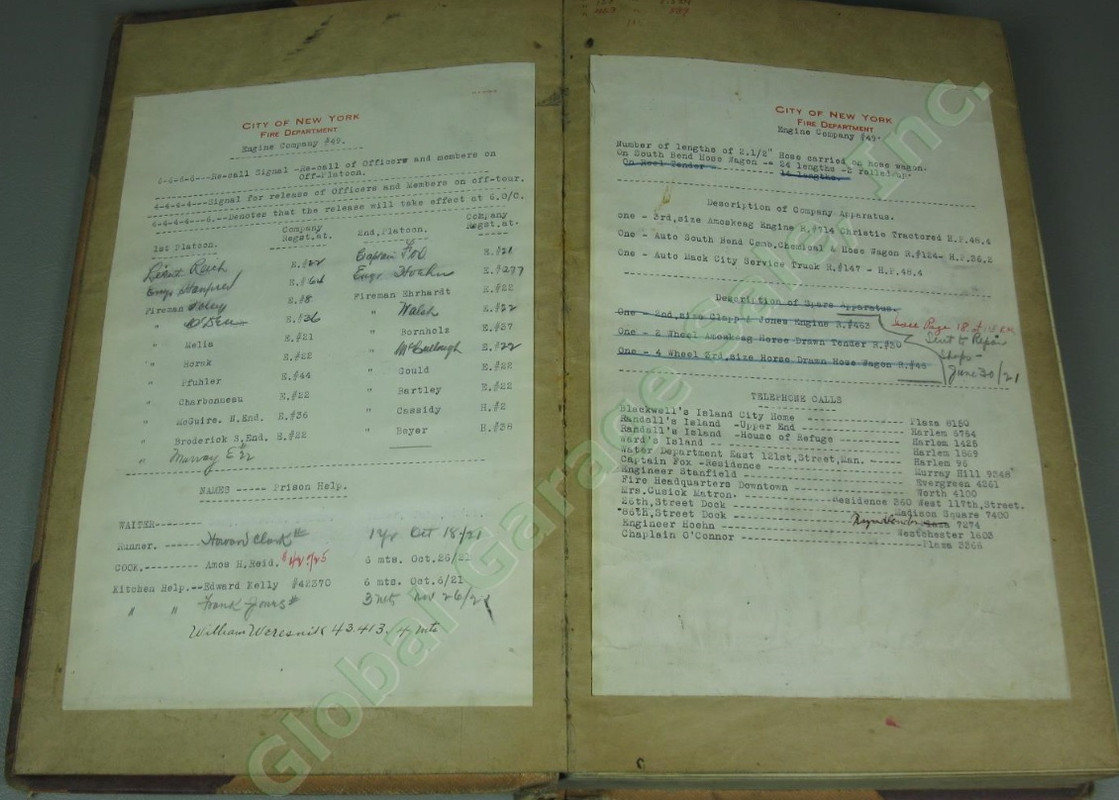 CITY OF NEW YORK
FIRE DEPARTMENT
Engine Company #49.
6-6-6-6---Re-call Signal -Re-call of Officers and members on
Off-Platoon.
4-4-4-4---Signal for release of Officers and Members on off-tour.
4-4-4-4---6,--Denotes that the release will take effect at 6,O/C.
1st Platoon. Company Regst,at. 2nd, Platoon. Company Regst,at-
Lieut Reich E.#22 Captain Fox E.#21
Engr Stanfield E.#64 Engr Hoehn E.#277
Fireman Foley E.#8 Fireman Ehrhardt E.#22
" O'Dell E.#36 " Walsh E.#22
" Melia E.#21 " Bornholz E.#37
" Hornk E.#22 " McCullough E.#22
" Pfuhler E.#44 " Gould E.#22
" Charbonneau E.#22 " Bartley E.#22
" McGuire. N.End. E.#36 " Cassidy H.#2
" Broderick S.End. E.#22 " Beyer H.#38
" Murray E 22
NAMES ----- Prison Help.
WAITER-------
Runner. -------- Howard Clark # 1 yr Oct 18/21
COOK.--------- Amos H.Reid. 6 mts. Oct.26/21
Kitchen Help.--Edward Kelly #42370 6 mts. Oct.6/21
" " Frank Jones # 3 mts Nov 26/21
William Weresnik 43.413. 4 mts
CITY OF NEW YORK
FIRE DEPARTMENT
Engine Company #49.
Number of lengths of 2.1/2" Hose carried on Hose wagon.
On South Bend Hose Wagon -- 24 lengths -2 rolledup.
On Reel Tender -- 14 lengths.
Description of Company Apparatus.
one - 3rd,size Amoskeag Engine R.#714 Christie Tractored H.P.48.4
One - Auto South Bend Comb,Chemical & Hose Wagon R.#124- H.P.36.2
One - Auto Mack City Service Truck R.#147 - H.P.48.4
Description of Spare Apparatus.
One - 2nd,size Clapp & Jones Engine R.#463
See Page 18
One - 2 Wheel Amoskeag Horse Drawn Tender R.#30
Sent to Repair
Shops -
One - 4 Wheel 3rd,size Horse Drawn Hose Wagon R.#46
June 30/21
TELEPHONE CALLS
Blackwell's Island City Home ------------- Plaza 8150
Randall's Island -Upper End ------------- Harlem 6764
Randall's Island -House of Refuge ------- Harlem 1425
Ward's Island -- ------------------ Harlem 1869
Water Department East 121st,Street,Man. ----- Harlem 96
Captain Fox -Residence ------------- Murray Hill 9248
Engineer Stanfield ------------- Evergreen 4261
Fire Headquarters Downtown ------------- Worth 4100
Mrs.Cusick Matron. ---------- Residence 360 West 117th,Street.
26th,Street Dock ------------- Madison Square 7400
86th,Street Dock ------------- 7274
Engineer Hoehn ------------- Westchester 1603
Chaplain O'Connor ------------- Plaza 3366
Global Garage Sale, Inc.